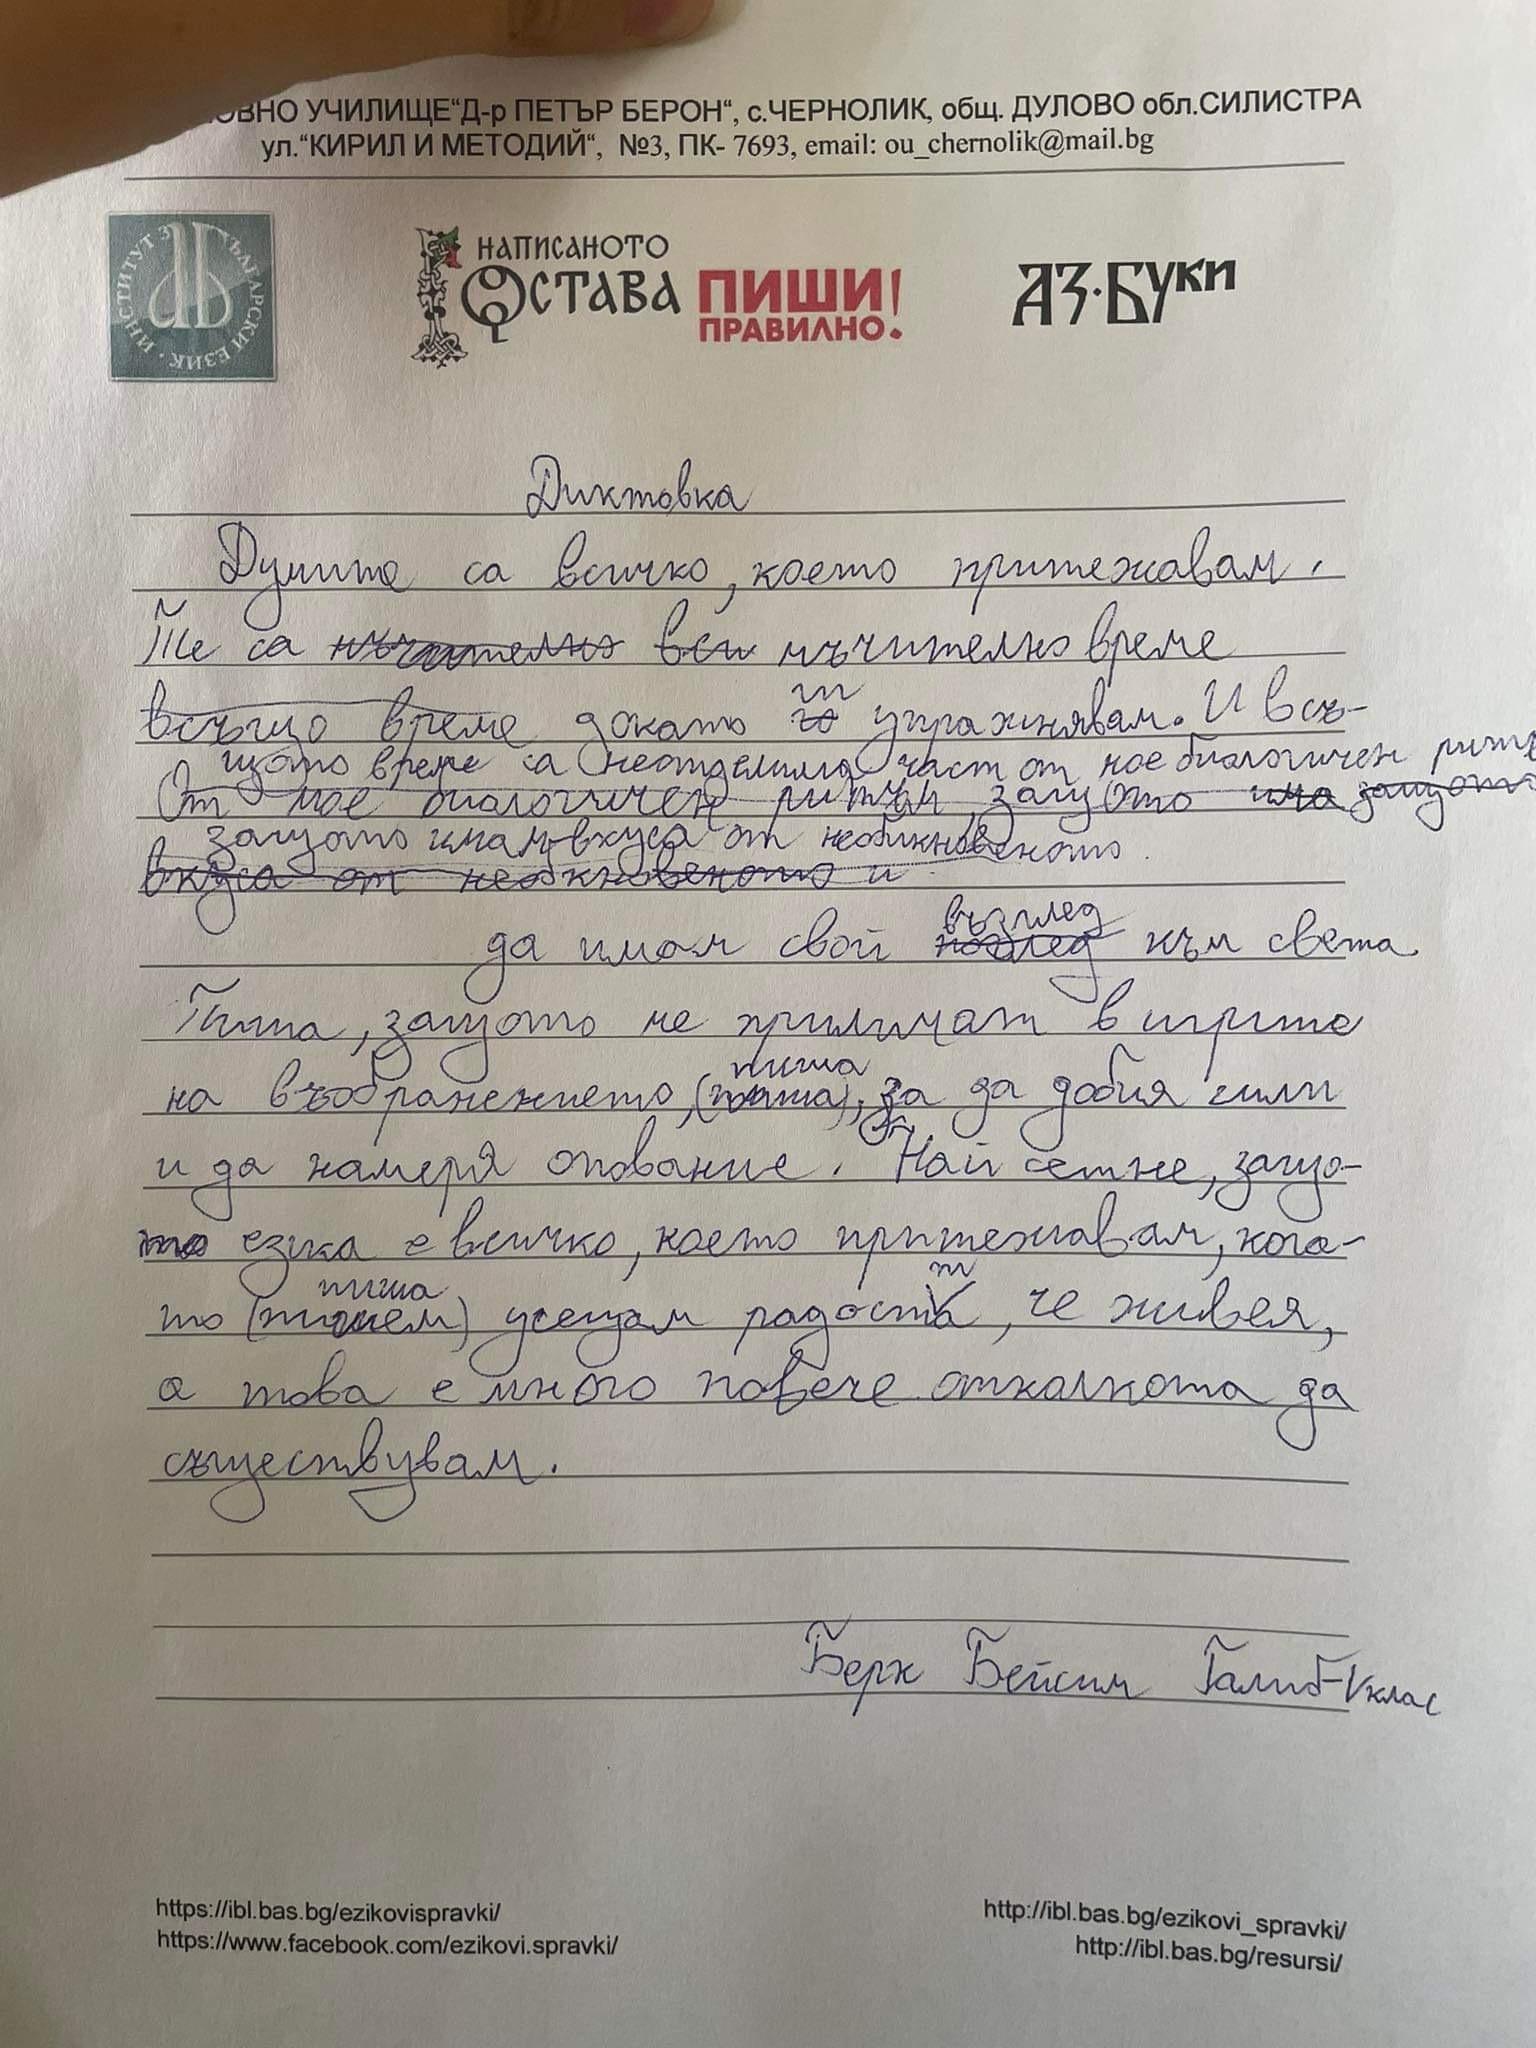 ОВНО УЧИЛИЩЕ“Д-р ПЕТЪР БЕРОН“, с.ЧЕРНОЛИК, общ. ДУЛОВО обл.СИЛИСТРА
ул.“КИРИЛ И МЕТОДИЙ“, №3, ПК- 7693, email: ou_chernolik@mail.bg
ИНСТИТУТ ЗА БЪЛГАРСКИ ЕЗИК
НАПИСАНОТО
ОСТАВА
ПИШИ
ПРАВИЛНО!
АЗ·БУКИ
Диктовка
Думите са всичко, което притежавам.
Те са мъчително вси мъчително време
всъщо време докато ги упражнявам. И всъ-
щото време са неотделима част от мое биологичен ритъм
От мое биологичен ритъм, защото има защото
защото имам вкуса от необикновеното
вкуса от необкновеното и
възглед
да имам свой поглед към света
Пиша, защото ме приличат в игрите
пиша
на въображението, (пиша), за да добия сили
и да намеря опование. Най сетне, защо-
то езика е всичко, което притежавам, кога-
пиша
то (пишем) усещам радоста, че живея,
а това е много повече отколкота да
съществувам.
Берк Бейсим Галиб-V клас
https://ibl.bas.bg/ezikovispravki/
https://www.facebook.com/ezikovi.spravki/
http://ibl.bas.bg/ezikovi_spravki/
http://ibl.bas.bg/resursi/